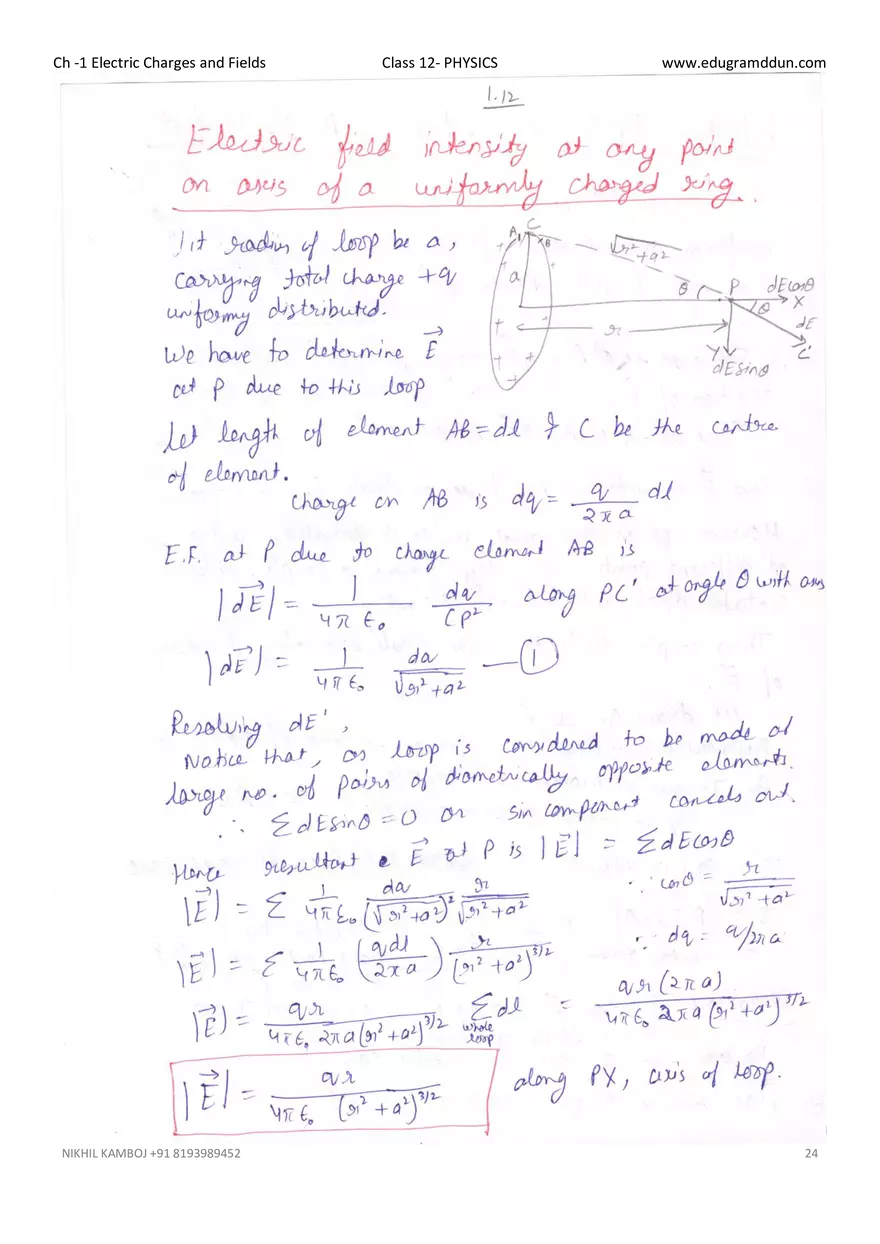 Ch -1 Electric Charges and Fields Class 12- PHYSICS www.edugramddun.com
1.12
Electric field intensity at any point
on axis of a uniformly charged ring.
radius of loop be a,
carrying total charge +q
uniformy distributed.
We have to determine E⃗
at P due to this loop
A C B
a
√r²+a²
r
θ P dEcosθ
θ X
dE
C'
Y dEsinθ
Let length of element AB = dl & C be the centre
of element.
Charge on AB is dq = q/2πa dl
E.F. at P due to charge element AB is
|dE⃗| = 1/4πε₀ dq/CP² along PC' at angle θ with axis
|dE⃗| = 1/4πε₀ dq/√r²+a² —①
Resolving dE',
Notice that, as loop is considered to be made of
large no. of pairs of diametrically opposite elements.
∴ ΣdEsinθ = 0 or sin component cancels out.
Hence resultant E⃗ at P is |E⃗| = ΣdEcosθ
|E⃗| = Σ 1/4πε₀ dq/(√r²+a²)² r/√r²+a² ∵ cosθ = r/√r²+a²
|E⃗| = Σ 1/4πε₀ (qdl/2πa) r/(r²+a²)^3/2 ∵ dq = q/2πa
|E⃗| = qr/4πε₀ 2πa(r²+a²)^3/2 Σdl whole loop = qr(2πa)/4πε₀ 2πa(r²+a²)^3/2
|E⃗| = qr/4πε₀ (r²+a²)^3/2 along PX, axis of loop.
NIKHIL KAMBOJ +91 8193989452 24